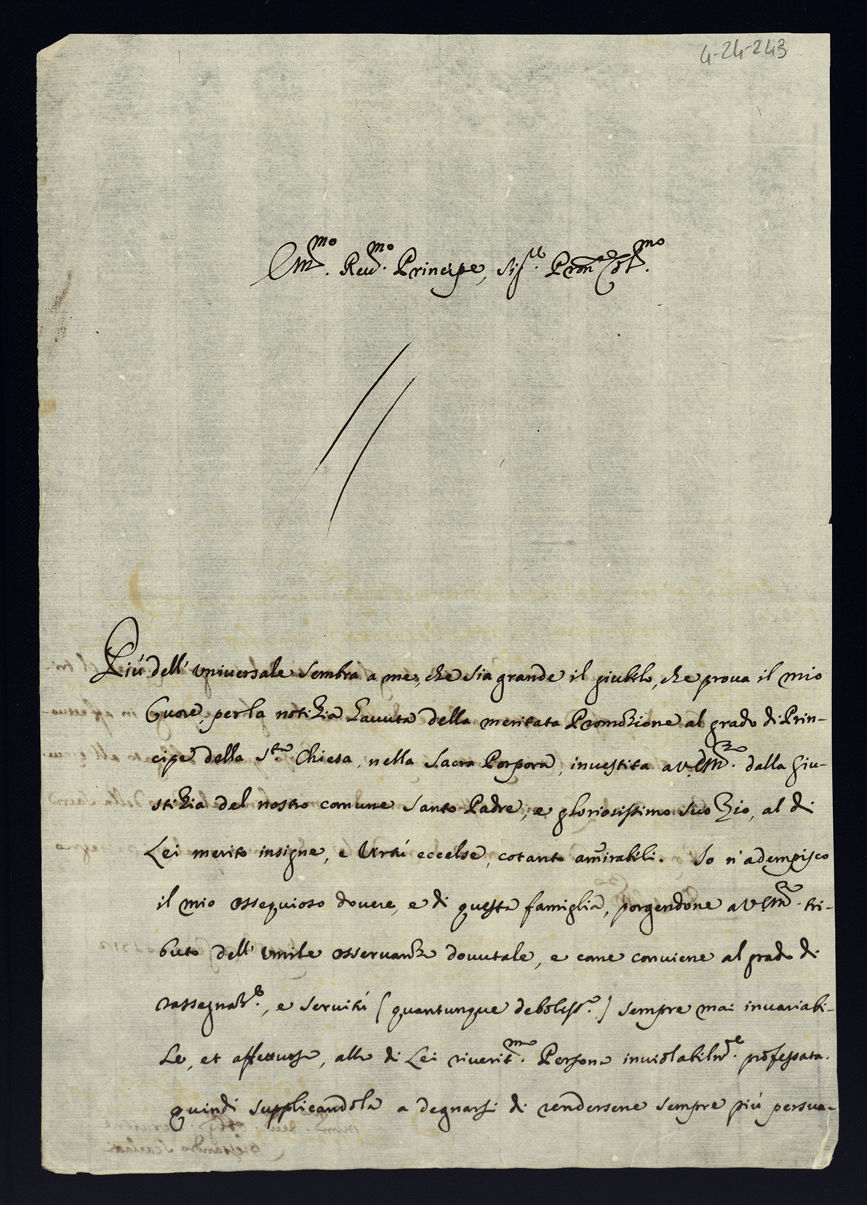 4-24-243
Em.mo Reu.mo Principe, Sig.re Pron Col.mo
Più dell' vniuersale sembra a me, che sia grande il giubilo, che proua il mio
Cuore, per la notizia hauuta della meritata Promozione al grado di Prin-
cipe della S.ta Chiesa, nella Sacra Porpora, inuestita a V. Em.za dalla giu-
stizia del nostro comune Santo Padre, e gloriosissimo suo Zio, al di
Lei merito insigne, e Virtù eccelse, cotanto amirabili. Io n'adempisco
il mio ossequioso douere, e di questa famiglia, porgendone a V. Em.za tri-
buto dell' vmile osseruanza douutale, e come conuiene al grado di
rassegnat.e, e seruitù (quantunque deboliss.a) sempre mai inuariabi-
le, et affettuosa, alla di Lei riuerit.ma Persona inuiolabilm.te professata.
quindi supplicandola a degnarsi di rendersene sempre più persua-